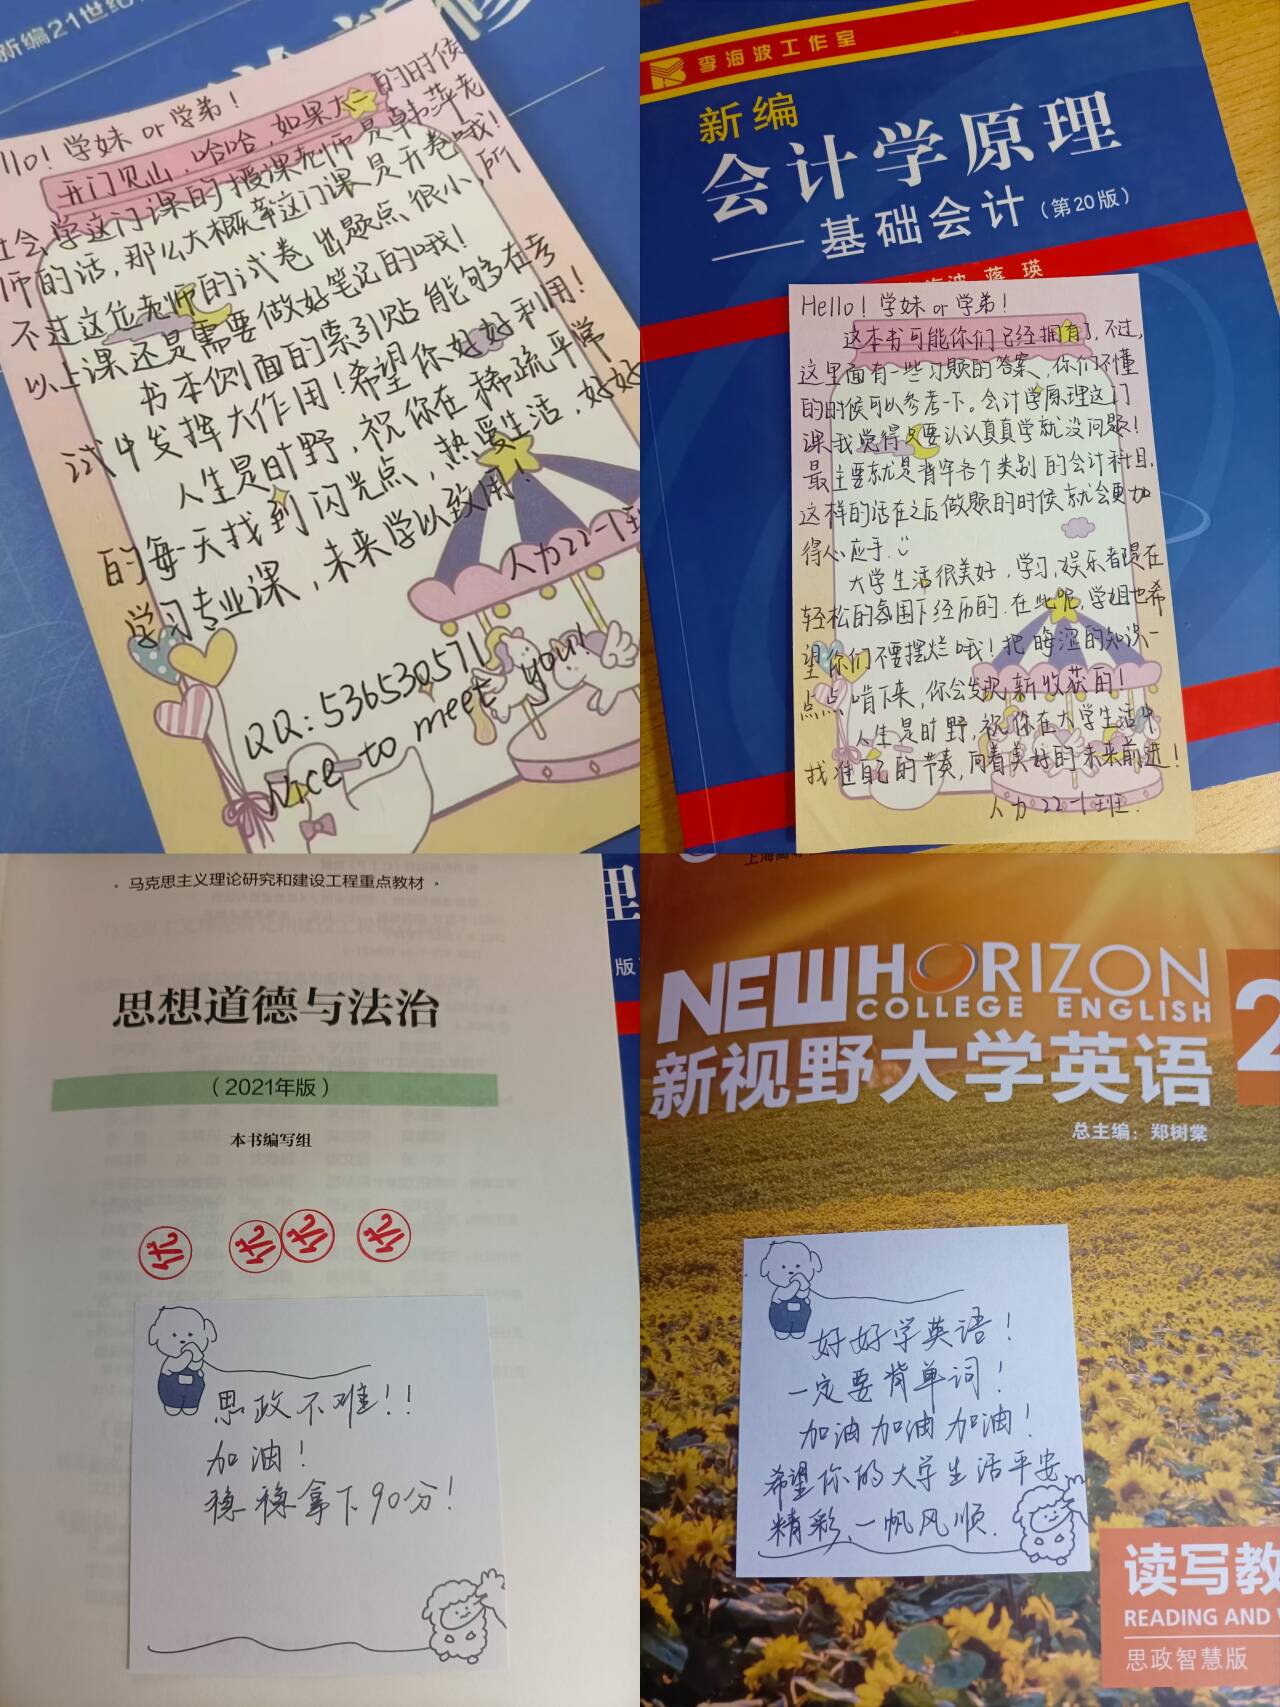 新编21世纪
llo! 学妹 or 学弟!
开门见山,哈哈,如果大一的时候
社会学这门课的授课老师是韩萍老
师的话,那么大概率这门课是开卷哦!
不过这位老师的试卷出题点很小,所
以上课还是需要做好笔记的哦!
书本侧面的索引贴能够在考
试中发挥大作用!希望你好好利用!
人生是旷野,祝你在稀疏平常
的每一天找到闪光点,热爱生活,好好
学习专业课,未来学以致用!
人力22-1班
QQ:536530571
Nice to meet you!
李海波工作室
新编
会计学原理
——基础会计(第20版)
海波 蒋 瑛
Hello! 学妹 or 学弟!
这本书可能你们已经拥有了,不过,
这里面有一些习题的答案,你们不懂
的时候可以参考一下。会计学原理这门
课我觉得只要认认真真学就没问题!
最主要就是背牢各个类别的会计科目,
这样的话在之后做题的时候就会更加
得心应手.
大学生活很美好,学习,娱乐都是在
轻松的氛围下经历的.在此呢,学姐也希
望你们不要摆烂哦!把晦涩的知识一
点点啃下来,你会发现新收获的!
人生是旷野,祝你在大学生活中
找准自己的节奏,向着美好的未来前进!
人力22-1班.
·马克思主义理论研究和建设工程重点教材·
思想道德与法治
(2021年版)
本书编写组
优 优 优 优
思政不难!!
加油!
稳稳拿下90分!
理
版
NEW HORIZON
COLLEGE ENGLISH
新视野大学英语 2
总主编:郑树棠
好好学英语!
一定要背单词!
加油加油加油!
希望你的大学生活平安
精彩、一帆风顺.
读写教
READING AND
思政智慧版